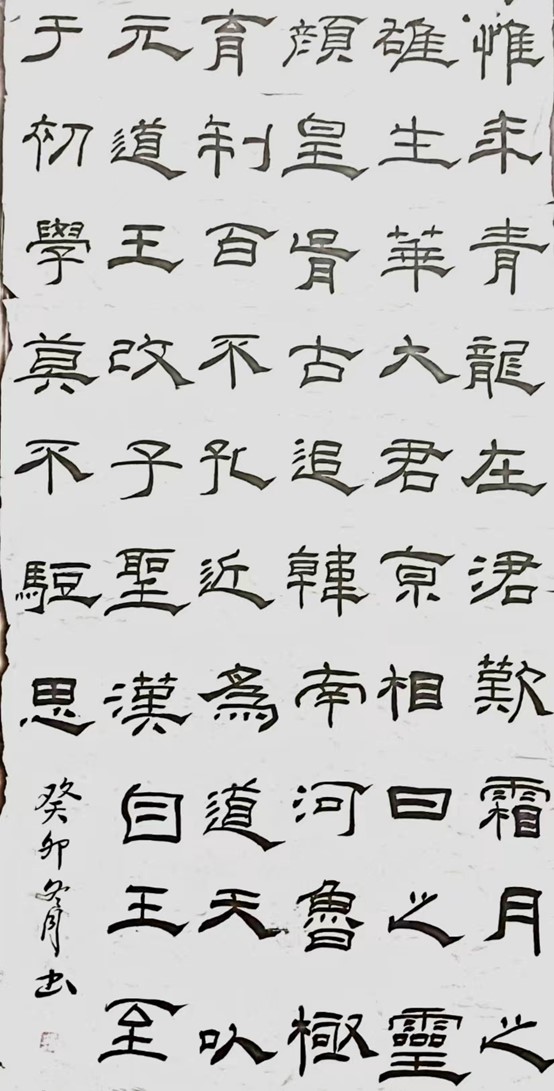 惟年青龍在涒歎霜月之
雄生華大君京相日之靈
顏皇胥古追韓南河魯極
育制百不孔近為道天以
元道王改子聖漢自王至
于初學莫不思
癸卯冬月书